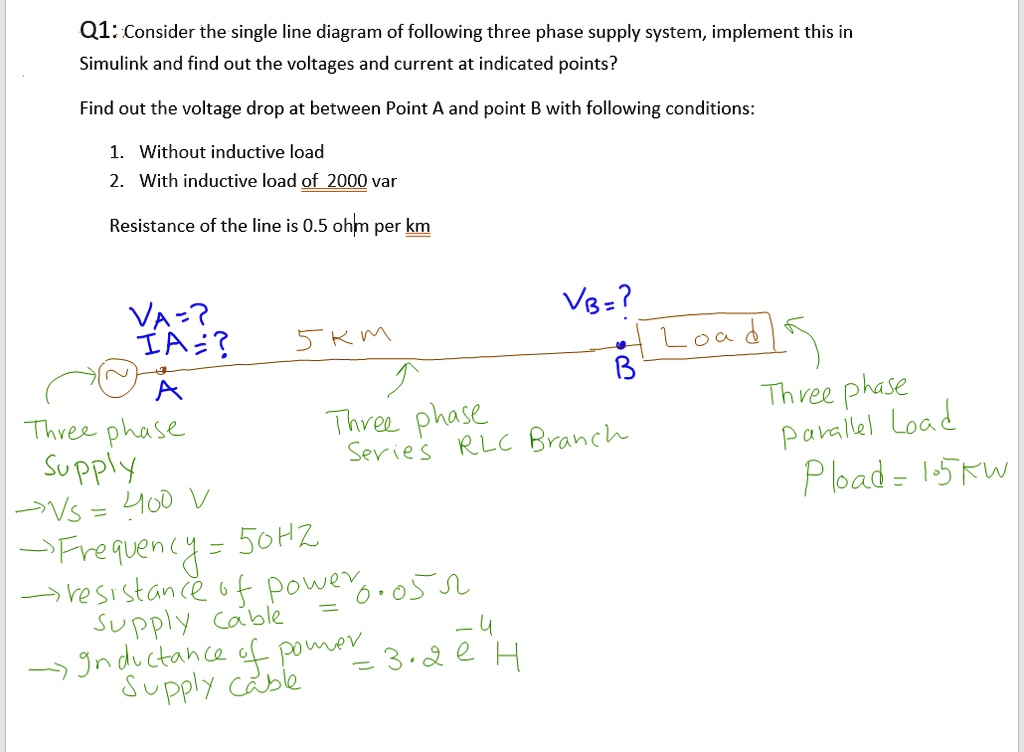 Q1: Consider the single line diagram of following three phase supply system, implement this in
Simulink and find out the voltages and current at indicated points?
Find out the voltage drop at between Point A and point B with following conditions:
1. Without inductive load
2. With inductive load of 2000 var
Resistance of the line is 0.5 ohm per km
VA=?
IA=?
5 KM
VB=?
Load
A
B
Three phase
Supply
→Vs = 400 V
→Frequency = 50HZ
→resistance of power
supply cable = 0.05Ω
→Inductance of power
supply cable = 3.2 e-4 H
Three phase
Series RLC Branch
Three phase
parallel Load
Pload = 1.5KW